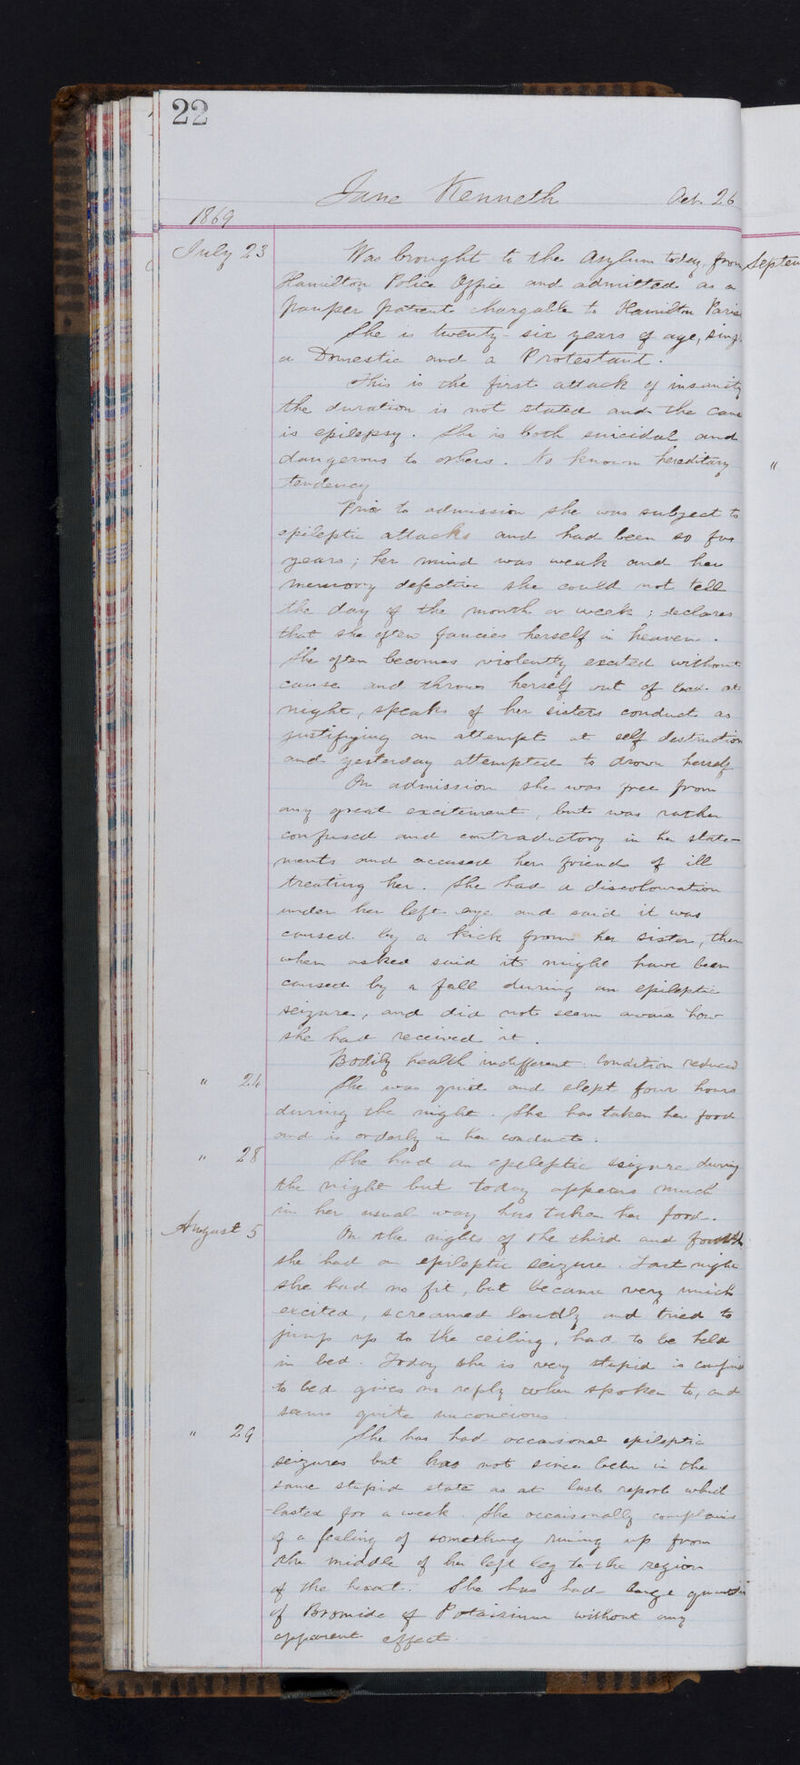 22
Jane Kenneth Oct. 26
1869
July 23 Was brought to the Asylum today, from
Hamilton Police Office and admitted as a
pauper patient chargable to Hamilton Paris
She is twenty-six years of age, sing
a Domestic and a Protestant.
This is the first attack of insanity
the duration is not stated and the cause
is epilepsy. She is both suicidal and
dangerous to others. No known hereditary
tendency
Prior to admission she was subject to
epileptic attacks and had been so for
years; her mind was weak and her
memory defective she could not tell
the day of the month or week; declares
that she often fancies herself in heaven.
She often becomes violently excited without
cause and throws herself out of bed at
night, speaks of her sisters conduct as
justifying an attempt at self destruction
and yesterday attempted to drown herself
On admission she was free from
any great excitement, but was rather
confused and contradictory in her state-
ments and accused her friends of ill
treating her. She had a discolouration
under her left eye and said it was
caused by a kick from her sister, then
when asked said it might have been
caused by a fall during an epileptic
seizure, and did not seem aware how
she had received it.
Bodily health indifferent. Condition reduced
" 24 She was quiet and slept four hours
during the night. She has taken her food
and is orderly in her conduct.
" 28 She had an epileptic seizure during
the night but today appears much
in her usual way has taken her food.
August 5 On the nights of the third and fourth
she had an epileptic seizure. Last night
she had no fit, but became very much
excited, screamed loudly and tried to
jump up to the ceiling, had to be held
in bed. Today she is very stupid is confined
to bed gives no reply when spoken to, and
seems quite unconcious.
" 29 She has had occasional epileptic
seizures but has not since been in the
same stupid state as at last report which
lasted for a week. She occaisonally complains
of a feeling of something runing up from
the middle of her left leg to the region
of the heart. She has had large quantities
of Bromide of Potassium without any
apparent effect.
Septem
"